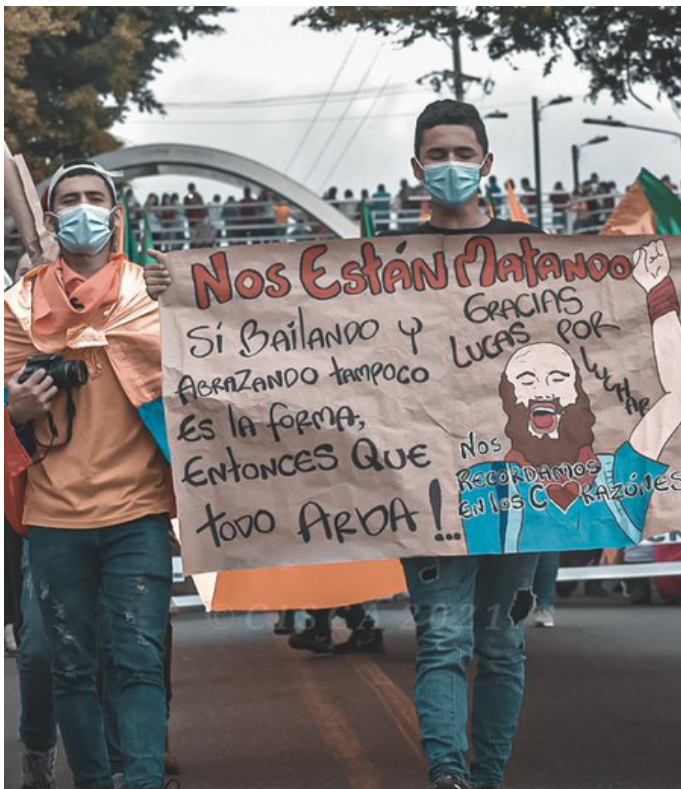 Nos Están Matando
Sí Bailando y
Abrazando tampoco
Es la forma,
Entonces Que
todo Arda!...
Gracias
Lucas por
luchar
Nos
recordamos
en los C♥razónes
© CISCA 2021